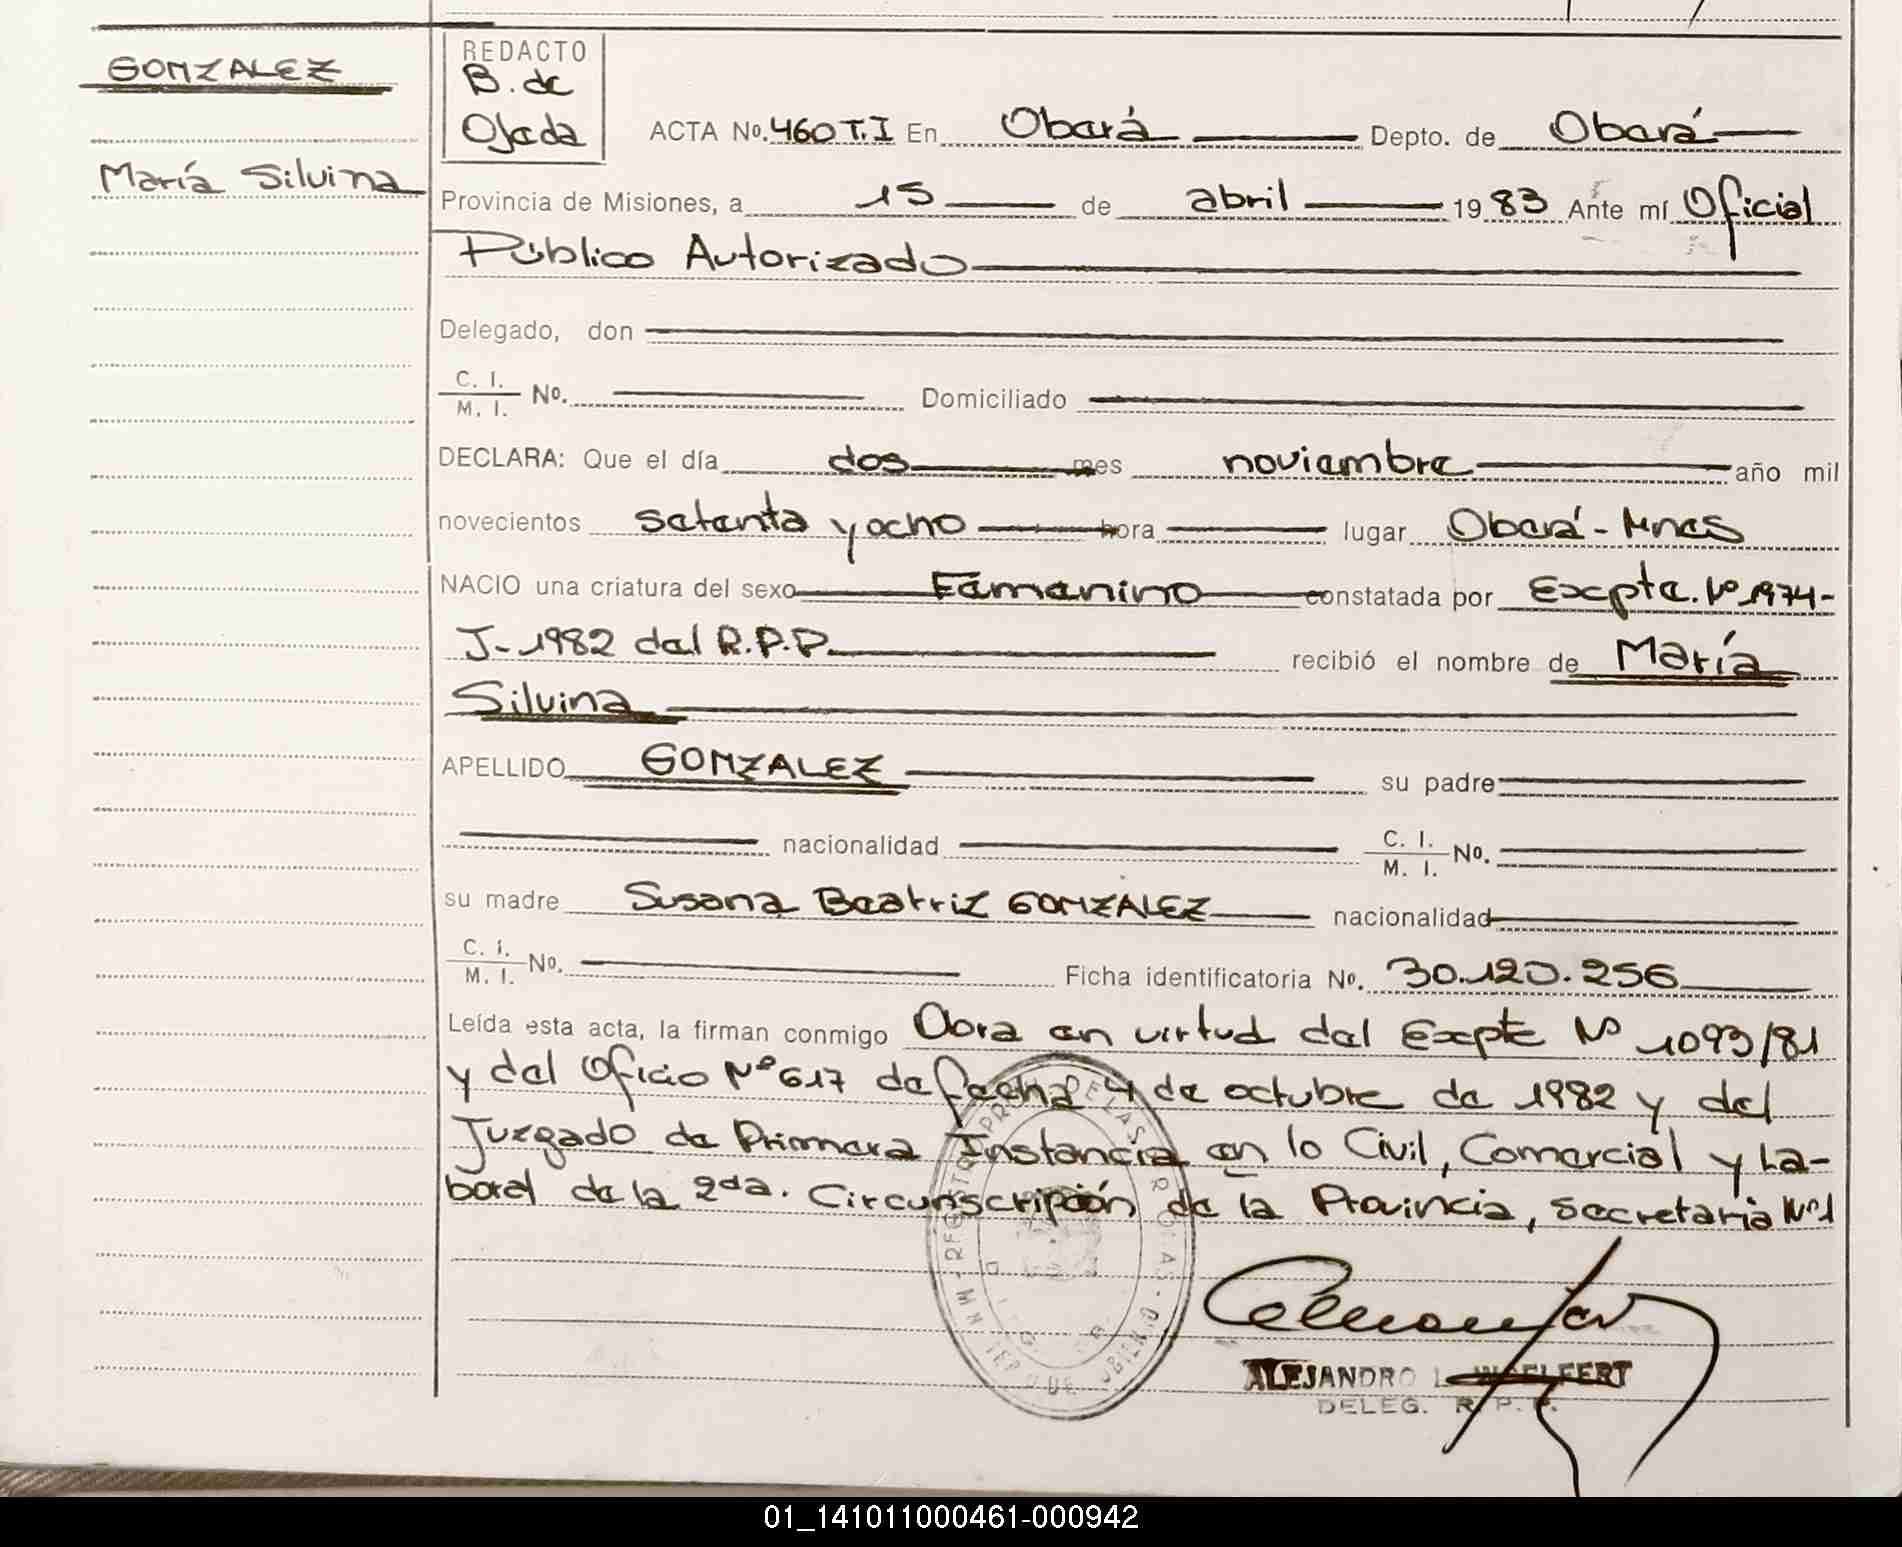 GONZALEZ
María Silvina
REDACTO
B. de
Ojeda
ACTA No. 460 T.I En Oberá Depto. de Oberá
Provincia de Misiones, a 15 de abril 1983 Ante mí Oficial
Público Autorizado
Delegado, don
C. I.
M. I. No. Domiciliado
DECLARA: Que el día dos mes noviembre año mil
novecientos setenta y ocho hora lugar Oberá - Mnes
NACIO una criatura del sexo Femenino constatada por Excpte. Nº 1974-
J-1982 del R.P.P. recibió el nombre de María
Silvina
APELLIDO GONZALEZ su padre
nacionalidad C. I.
M. I. No.
su madre Susana Beatriz GONZALEZ nacionalidad
C. I.
M. I. No. Ficha identificatoria No. 30.120.256
Leída esta acta, la firman conmigo Obra en virtud del Excpte Nº 1093/81
y del Oficio Nº 617 de fecha 4 de octubre de 1982 y del
Juzgado de Primera Instancia en lo Civil, Comercial y La-
boral de la 2da. Circunscripción de la Provincia, Secretaria Nº1
ALEJANDRO L. WOELFERT
DELEG. R. P. P.
01_141011000461-000942